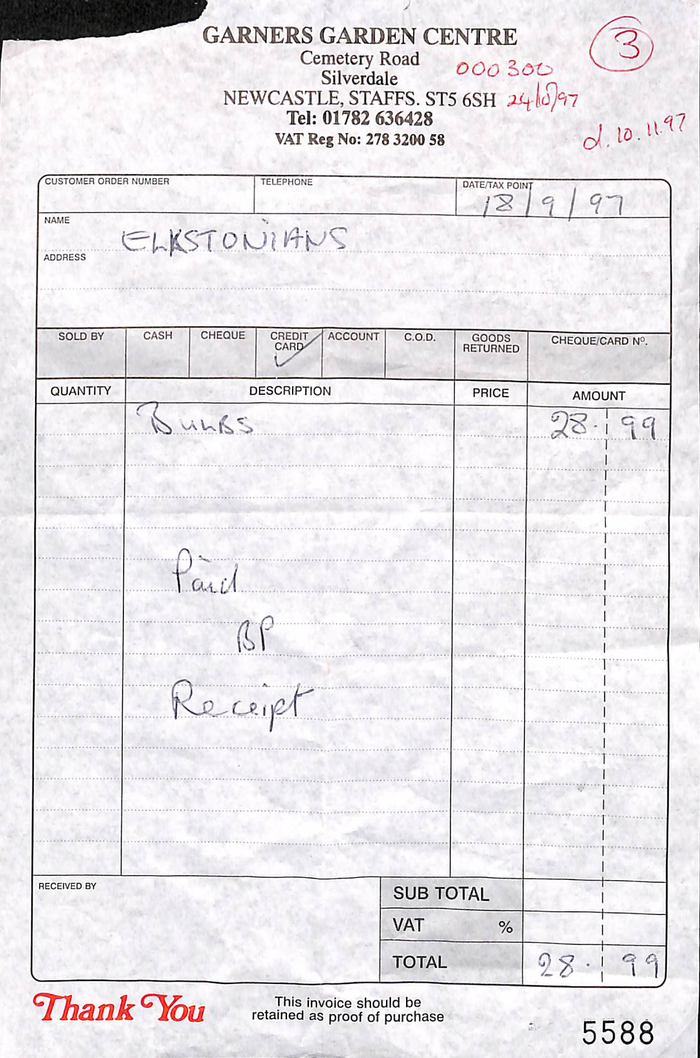 GARNERS GARDEN CENTRE
Cemetery Road
Silverdale
NEWCASTLE, STAFFS. ST5 6SH
Tel: 01782 636428
VAT Reg No: 278 3200 58
3
000300
24/10/97
d. 10.11.97
CUSTOMER ORDER NUMBER TELEPHONE DATE/TAX POINT
18/9/97
NAME
ELKSTONIANS
ADDRESS
SOLD BY CASH CHEQUE CREDIT CARD ACCOUNT C.O.D. GOODS RETURNED CHEQUE/CARD Nº.
✓
QUANTITY DESCRIPTION PRICE AMOUNT
BULBS 28. 99
Paid
BP
Receipt
RECEIVED BY
SUB TOTAL
VAT %
TOTAL 28. 99
Thank You
This invoice should be
retained as proof of purchase
5588